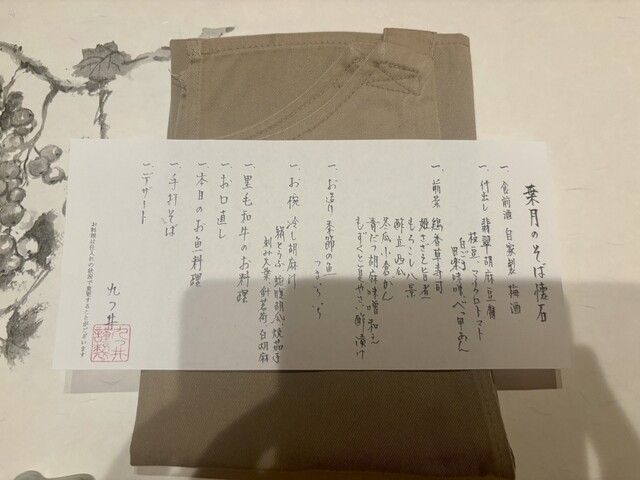 葉月のそば懐石
一、食前酒 自家製 梅酒
一、付出し 翡翠胡麻豆腐
枝豆、マイクロトマト
白味噌 べっ甲あん
一、前菜 鶏香草寿司
姫さざえ旨煮
もろこし八景
酢立西瓜
冬瓜小倉かん
青だつ胡麻味噌和え
もずくと夏やさい酢漬け
一、お造り 季節の魚
つまいろいろ
一、お椀 冷し胡麻汁
絹とうふ 焼茄子
刻み大葉 針茗荷 白胡麻
一、黒毛和牛のお料理
一、お口直し
一、本日のお魚料理
一、手打そば
一、デザート
九つ井
お料理は仕入れの状況で変更することがございます